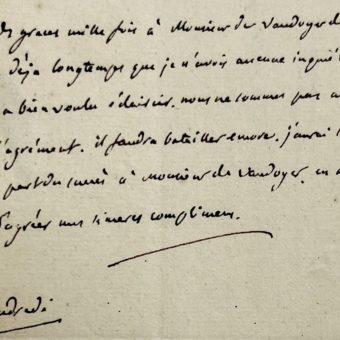 graces mille fois à Monsieur de Vaudoyer de
déja longtemps que je n'avois aucune inquié
a bien voulu éclaircir. nous ne sommes pas a
l'agrément. il faudra batailler encore. j'aurai
part du succès à Monsieur de Vaudoyer, en
d'agréer mes sinceres complimens.
ndredi